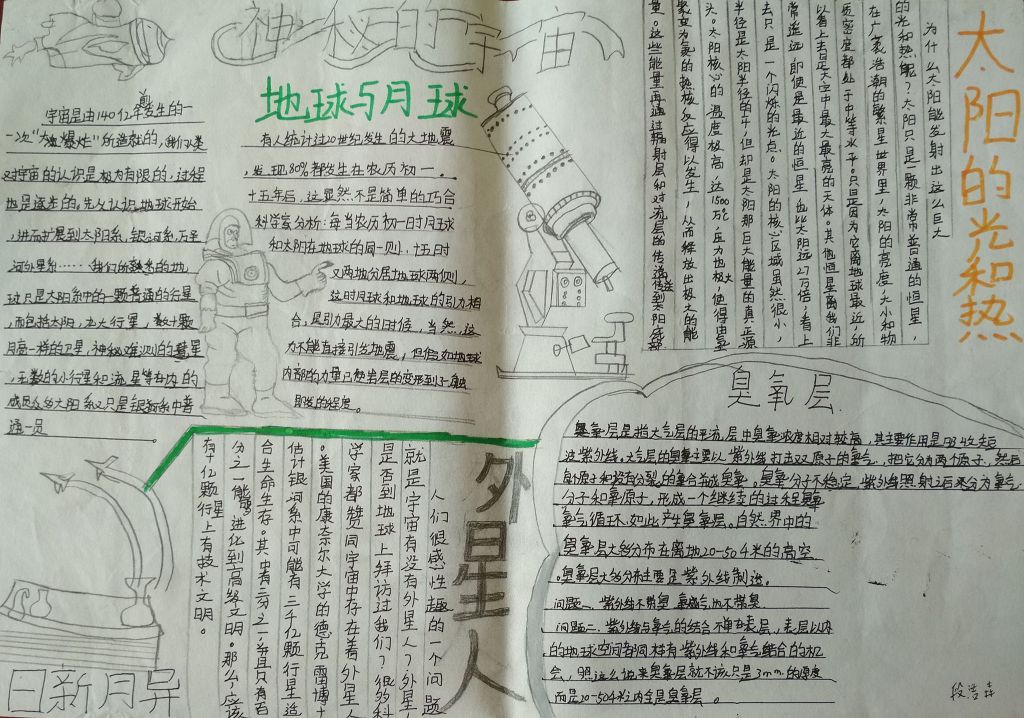 神秘的宇宙
前
宇宙是由140亿年发生的一
一次"大爆炸"所造就的,我们人类
对宇宙的认识是极为有限的,过程
也是逐步的。先从认识地球开始
,进而扩展到太阳系,银河系,乃至
河外星系……我们所熟悉的地
球只是太阳系中的一颗普通的行星
,而包括太阳,九大行星,数十颗
月亮一样的卫星,神秘难测的彗星
,无数的小行星和流星等在内的
成员众多太阳系又只是银河系中普
通一员
地球与月球
有人统计过20世纪发生的大地震
,发现80%都发生在农历初一、
十五年后,这显然不是简单的巧合
科学家分析:每当农历初一时月球
和太阳在地球的同一则,十五时
又两地分居地球两侧,
这时月球和地球的引力相
合,是引力最大的时候,当然,这
力不能直接引发地震,但假如地球
内部的力量已使岩层的变形到了一触
即发的程度。
太阳的光和热
为什么太阳能发射出这么巨大
的光和热呢?太阳只是一颗非常普通的恒星,
在广袤浩瀚的繁星世界里,太阳的亮度,大小和物
质密度都处于中等水平。只是因为它离地球最近,所
以看上去是天空中最大最亮的天体。其他恒星离我们非
常遥远,即使是最近的恒星,也比太阳远27万倍,看上
去只是一个闪烁的光点。太阳的核心区域虽然很小,
半径是太阳半径的1/4,但却是太阳那巨大能量的真正源
头。太阳核心的温度极高,达1500万℃,压力也极大,使得由氢
聚变为氦的热核反应得以发生,从而释放出极大的能
量。这些能量再通过辐射层和对流层的传递
臭氧层
臭氧层是指大气层的平流层中臭氧浓度相对较高,其主要作用是吸收短
波紫外线,大气层的臭氧主要以紫外线打击双原子的氧气,把它分为两个原子,然后
每个原子和没有分裂的氧合并成臭氧。臭氧分子不稳定,紫外线照射之后又分为氧气
分子和氧原子,形成一个继续的过程臭氧
氧气循环,如此产生臭氧层。自然界中的
臭氧层大多分布在离地20-50千米的高空
。臭氧层大多分布主要是紫外线制造。
的地球空间各间都有紫外线和氧气结合的机
会,照这么说来臭氧层就不该只是3mm的厚度
而是20-50千米内全是臭氧层。
外星人
人们很感性趣的一个问题
就是宇宙有没有外星人?外星人
是否到地球上拜访过我们?很多科
学家都赞同宇宙中存在着外星人
。美国的康奈尔大学的德克雷博士
估计银河系中可能有三千亿颗行星适
合生命生存。其中有三分之一并且只有百
分之一能够进化到高级文明。那么应该
有十亿颗行星上有技术文明。
日新月异